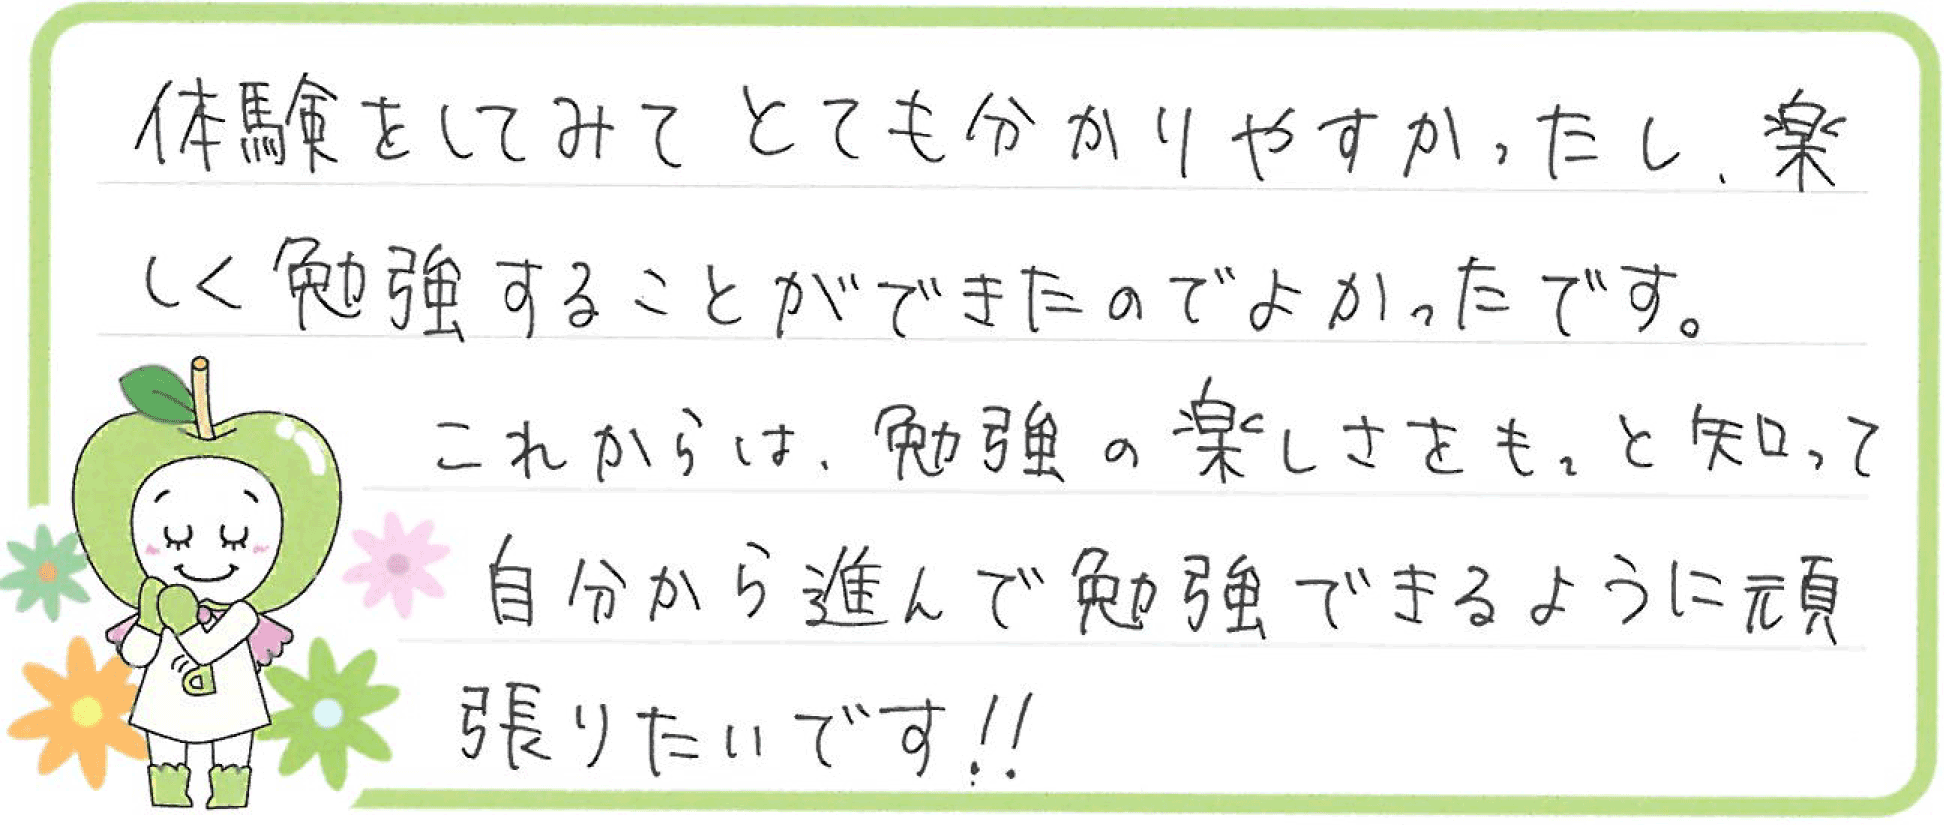 体験をしてみてとても分かりやすかったし、楽
しく勉強することができたのでよかったです。
これからは、勉強の楽しさをもっと知って
自分から進んで勉強できるように頑
張りたいです!!